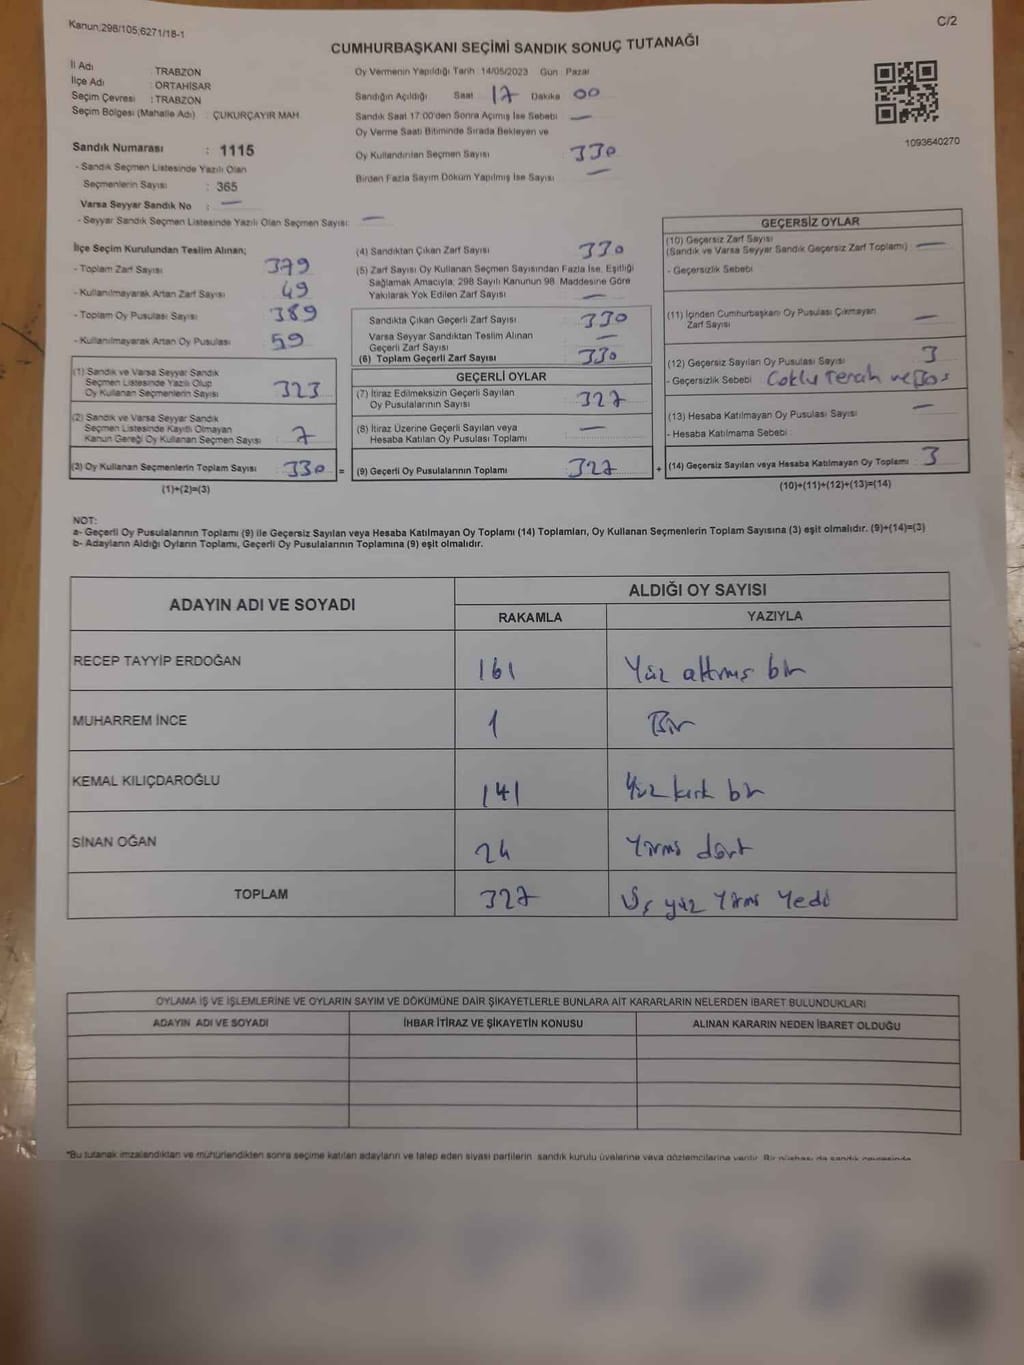 Kanun:298/105,6271/18-1
C/2
CUMHURBAŞKANI SEÇİMİ SANDIK SONUÇ TUTANAĞI
İl Adı : TRABZON
İlçe Adı : ORTAHİSAR
Seçim Çevresi : TRABZON
Seçim Bölgesi (Mahalle Adı) : ÇUKURÇAYIR MAH
Sandık Numarası : 1115
- Sandık Seçmen Listesinde Yazılı Olan
Seçmenlerin Sayısı : 365
Varsa Seyyar Sandık No : —
- Seyyar Sandık Seçmen Listesinde Yazılı Olan Seçmen Sayısı: —
Oy Vermenin Yapıldığı Tarih :14/05/2023 Gün : Pazar
Sandığın Açıldığı Saat 17 Dakika 00
Sandık Saat 17:00'den Sonra Açımış İse Sebebi —
Oy Verme Saati Bitiminde Sırada Bekleyen ve
Oy Kullandırılan Seçmen Sayısı 330
Birden Fazla Sayım Döküm Yapılmış İse Sayısı —
1093640270
İlçe Seçim Kurulundan Teslim Alınan;
- Toplam Zarf Sayısı 379
- Kullanılmayarak Artan Zarf Sayısı 49
- Toplam Oy Pusulası Sayısı 389
- Kullanılmayarak Artan Oy Pusulası 59
(1) Sandık ve Varsa Seyyar Sandık
Seçmen Listesinde Yazılı Olup
Oy Kullanan Seçmenlerin Sayısı 323
(2) Sandık ve Varsa Seyyar Sandık
Seçmen Listesinde Kayıtlı Olmayan
Kanun Gereği Oy Kullanan Seçmen Sayısı 7
(3) Oy Kullanan Seçmenlerin Toplam Sayısı 330 =
(1)+(2)=(3)
(4) Sandıktan Çıkan Zarf Sayısı 330
(5) Zarf Sayısı Oy Kullanan Seçmen Sayısından Fazla İse, Eşitliği
Sağlamak Amacıyla, 298 Sayılı Kanunun 98. Maddesine Göre
Yakılarak Yok Edilen Zarf Sayısı —
Sandıkta Çıkan Geçerli Zarf Sayısı 330
Varsa Seyyar Sandıktan Teslim Alınan
Geçerli Zarf Sayısı —
(6) Toplam Geçerli Zarf Sayısı 330
GEÇERLİ OYLAR
(7) İtiraz Edilmeksizin Geçerli Sayılan
Oy Pusulalarının Sayısı 327
(8) İtiraz Üzerine Geçerli Sayılan veya
Hesaba Katılan Oy Pusulası Toplamı —
(9) Geçerli Oy Pusulalarının Toplamı 327 +
GEÇERSİZ OYLAR
(10) Geçersiz Zarf Sayısı
(Sandık ve Varsa Seyyar Sandık Geçersiz Zarf Toplamı) —
- Geçersizlik Sebebi
(11) İçinden Cumhurbaşkanı Oy Pusulası Çıkmayan
Zarf Sayısı —
(12) Geçersiz Sayılan Oy Pusulası Sayısı 3
- Geçersizlik Sebebi Çoklu Tercih ve Boş
(13) Hesaba Katılmayan Oy Pusulası Sayısı —
- Hesaba Katılmama Sebebi :
(14) Geçersiz Sayılan veya Hesaba Katılmayan Oy Toplamı 3
(10)+(11)+(12)+(13)=(14)
NOT:
a- Geçerli Oy Pusulalarının Toplamı (9) ile Geçersiz Sayılan veya Hesaba Katılmayan Oy Toplamı (14) Toplamları, Oy Kullanan Seçmenlerin Toplam Sayısına (3) eşit olmalıdır. (9)+(14)=(3)
b- Adayların Aldığı Oyların Toplamı, Geçerli Oy Pusulalarının Toplamına (9) eşit olmalıdır.
ADAYIN ADI VE SOYADI ALDIĞI OY SAYISI
RAKAMLA YAZIYLA
RECEP TAYYİP ERDOĞAN 161 Yüz altmış bir
MUHARREM İNCE 1 Bir
KEMAL KILIÇDAROĞLU 141 Yüz kırk bir
SİNAN OĞAN 24 Yirmi dört
TOPLAM 327 Üç yüz Yirmi Yedi
OYLAMA İŞ VE İŞLEMLERİNE VE OYLARIN SAYIM VE DÖKÜMÜNE DAİR ŞİKAYETLERLE BUNLARA AİT KARARLARIN NELERDEN İBARET BULUNDUKLARI
ADAYIN ADI VE SOYADI İHBAR İTİRAZ VE ŞİKAYETİN KONUSU ALINAN KARARIN NEDEN İBARET OLDUĞU
*Bu tutanak imzalandıktan ve mühürlendikten sonra seçime katılan adayların ve talep eden siyasi partilerin sandık kurulu üyelerine veya gözlemcilerine verilir. Bir nüshası da sandık çevresinde